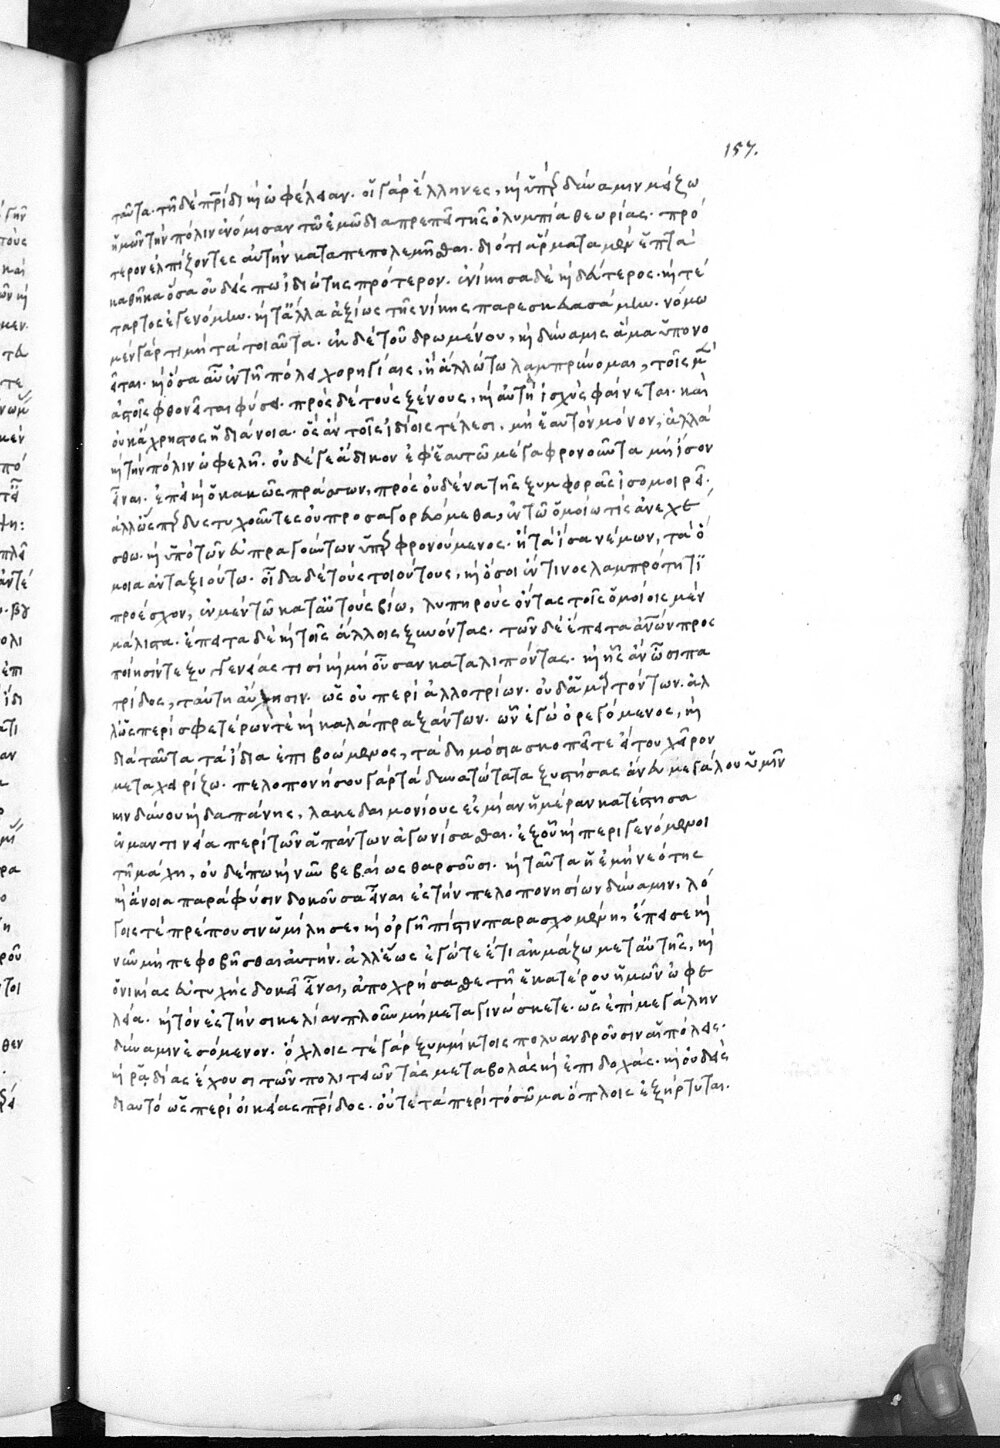 157.
ταῦτα. τῇ δὲ πρίδι κỳ ὠφέλειαν. οἱ γὰρ ἕλληνες, κỳ ὑπὲρ δύναμιν μείζω
ἡμῶν τὴν πόλιν ἐνόμισαν τῷ ἐμῷ διαπρεπεῖ τῆς ὀλυμπία θεωρίας. πρό
τερον ἐλπίζοντες αὐτὴν καταπεπολεμῆσθαι. διότι ἅρματα μὲν ἑπτὰ
καθῆκα ὅσα οὐδείς πω ἰδιώτης πρότερον. ἐνίκησα δὲ κỳ δεύτερος. κỳ τέ
ταρτος ἐγενόμην. κỳ τἄλλα ἀξίως τῆς νίκης παρεσκευασάμην. νόμω
μὲν γὰρ τιμὴ τὰ τοιαῦτα. ἐκ δὲ τοῦ δρωμένου, κỳ δύναμις ἅμα ὑπονο
εῖται. κỳ ὅσα αὖ ἐν τῇ πόλει χορηγίαις, ἢ ἄλλω τω λαμπρύνομαι, τοῖς μὲν
ἀστοῖς φθονεῖται φύσει. πρὸς δὲ τοὺς ξένους, κỳ αὐτὴ ἰσχὺς φαίνεται. καὶ
οὐκ ἄχρηστος ἡ διάνοια. ὃς ἂν τοῖς ἰδίοις τέλεσι, μὴ ἑαυτὸν μόνον, ἀλλὰ
κỳ τὴν πόλιν ὠφελῇ. οὐδέ γε ἄδικον ἐφ' ἑαυτῶ μέγα φρονοῦντα μὴ ἴσον
εἶναι. ἐπεὶ κỳ ὁ κακῶς πράσσων, πρὸς οὐδένα τῆς ξυμφορᾶς ἰσομοιρεῖ.
ἀλλ' ὥσπερ δυστυχοῦντες οὐ προσαγορευόμεθα, ἐν τῶ ὁμοίω τίς ἀνεχέ
σθω. κỳ ὑπὸ τῶν εὐπραγούντων ὑπερφρονούμενος. ἢ τὰ ἴσα νέμων, τὰ ὁ
μοια ἀνταξιούτω. οἶδα δὲ τοὺς τοιούτους, κỳ ὅσοι ἔν τινος λαμπρότητι
προέσχον, ἐν μὲν τῶ κατ' αὐτοὺς βίω, λυπηροὺς ὄντας τοῖς ὁμοίοις μὲν
μάλιστα. ἔπειτα δὲ κỳ τοῖς ἄλλοις ξυνόντας. τῶν δὲ ἔπειτα ἀνῶν προς
ποίησίν τε ξυγγενείας τισὶ κỳ μὴ οὖσαν καταλιπόντας. κỳ ἧς ἂν ὦσι πα
τρίδος, ταύτη αὔχησιν. ὡς οὐ περὶ ἀλλοτρίων. οὐδ' ἁμαρτόντων. ἀλ
λ' ὡς περὶ σφετέρων τὲ κỳ καλὰ πραξάντων. ὧν ἐγὼ ὀρεγόμενος, κỳ
διὰ ταῦτα τὰ ἴδια ἐπιβοώμενος, τὰ δημόσια σκοπεῖτε εἴ του χεῖρον
μεταχειρίζω. πελοπονήσου γὰρ τὰ δυνατώτατα ξυστήσας ἄνευ μεγάλου ὑμῖν
κινδύνου κỳ δαπάνης, λακεδαιμονίους ἐς μίαν ἡμέραν κατέστησα
ἐν μαντινεία περὶ τῶν ἁπάντων ἀγωνίσασθαι. ἐξ οὗ κỳ περιγενόμενοι
τῇ μάχη, οὐδέπω κỳ νῦν βεβαίως θαρσοῦσι. κỳ ταῦτα ἡ ἐμὴ νεότης
κỳ ἄνοια παρὰ φύσιν δοκοῦσα εἶναι ἐς τὴν πελοπονησίων δύναμιν, λό
γοις τὲ πρέπουσιν ὡμίλησε, κỳ ὀργῇ πίστιν παρασχομένη, ἔπεισε κỳ
νῦν μὴ πεφοβῆσθαι αὐτήν. ἀλλ' ἕως ἐγώ τε ἔτι ἀκμάζω μετ' αὐτῆς, κỳ
ὁ νικίας εὐτυχὴς δοκεῖ εἶναι, ἀποχρήσασθε τῇ ἑκατέρου ἡμῶν ὠφε
λεία. κỳ τὸν ἐς τὴν σικελίαν πλοῦν μὴ μεταγινώσκετε. ὡς ἐπὶ μεγάλην
δύναμιν ἐσόμενον. ὄχλοις τὲ γὰρ ξυμμίκτοις πολυανδροῦσιν αἱ πόλεις.
κỳ ῥαδίας ἔχουσι τῶν πολιτειῶν τὰς μεταβολὰς κỳ ἐπιδοχάς. κỳ οὐδεὶς
δι αυτὸ ὡς περὶ οἰκείας πρίδος. οὔτε τὰ περὶ τὸ σῶμα ὅπλοις ἐξήρτυται.